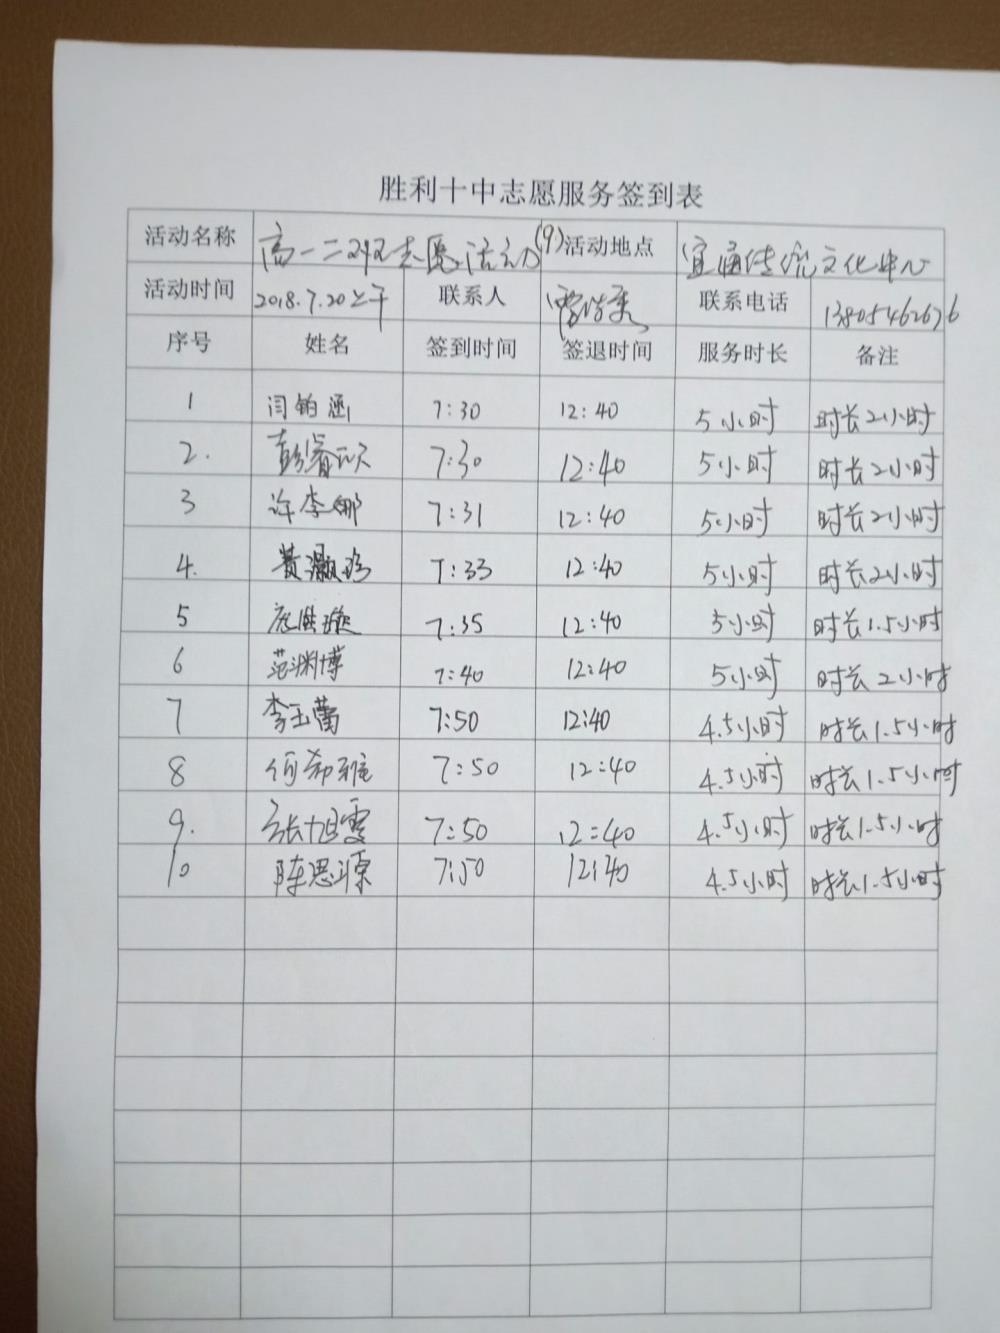 胜利十中志愿服务签到表
活动名称 高一二班志愿活动(9) 活动地点 宜通传统文化中心
活动时间 2018.7.20上午 联系人 联系电话 13805462676
序号 姓名 签到时间 签退时间 服务时长 备注
1 闫铂涵 7:30 12:40 5小时 时长2小时
2. 彭睿 7:30 12:40 5小时 时长2小时
3 许李娜 7:31 12:40 5小时 时长2小时
4. 黄灏珍 7:33 12:40 5小时 时长2小时
5 7:35 12:40 5小时 时长1.5小时
6 范渊博 7:40 12:40 5小时 时长2小时
7 李玉蕾 7:50 12:40 4.5小时 时长1.5小时
8 何希 7:50 12:40 4.5小时 时长1.5小时
9. 张旭雯 7:50 12:40 4.5小时 时长1.5小时
10 陈思源 7:50 12:40 4.5小时 时长1.5小时